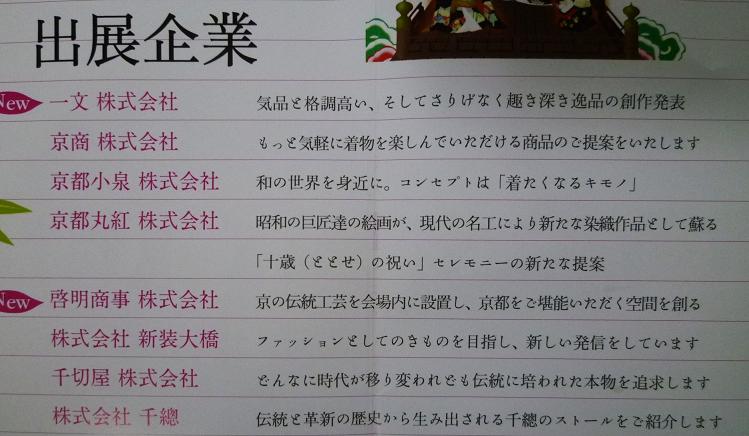 出展企業
New 一文 株式会社 気品と格調高い、そしてさりげなく趣き深き逸品の創作発表
京商 株式会社 もっと気軽に着物を楽しんでいただける商品のご提案をいたします
京都小泉 株式会社 和の世界を身近に。コンセプトは「着たくなるキモノ」
京都丸紅 株式会社 昭和の巨匠達の絵画が、現代の名工により新たな染織作品として蘇る
「十歳（ととせ）の祝い」セレモニーの新たな提案
New 啓明商事 株式会社 京の伝統工芸を会場内に設置し、京都をご堪能いただく空間を創る
株式会社 新装大橋 ファッションとしてのきものを目指し、新しい発信をしています
千切屋 株式会社 どんなに時代が移り変われども伝統に培われた本物を追求します
株式会社 千總 伝統と革新の歴史から生み出される千總のストールをご紹介します